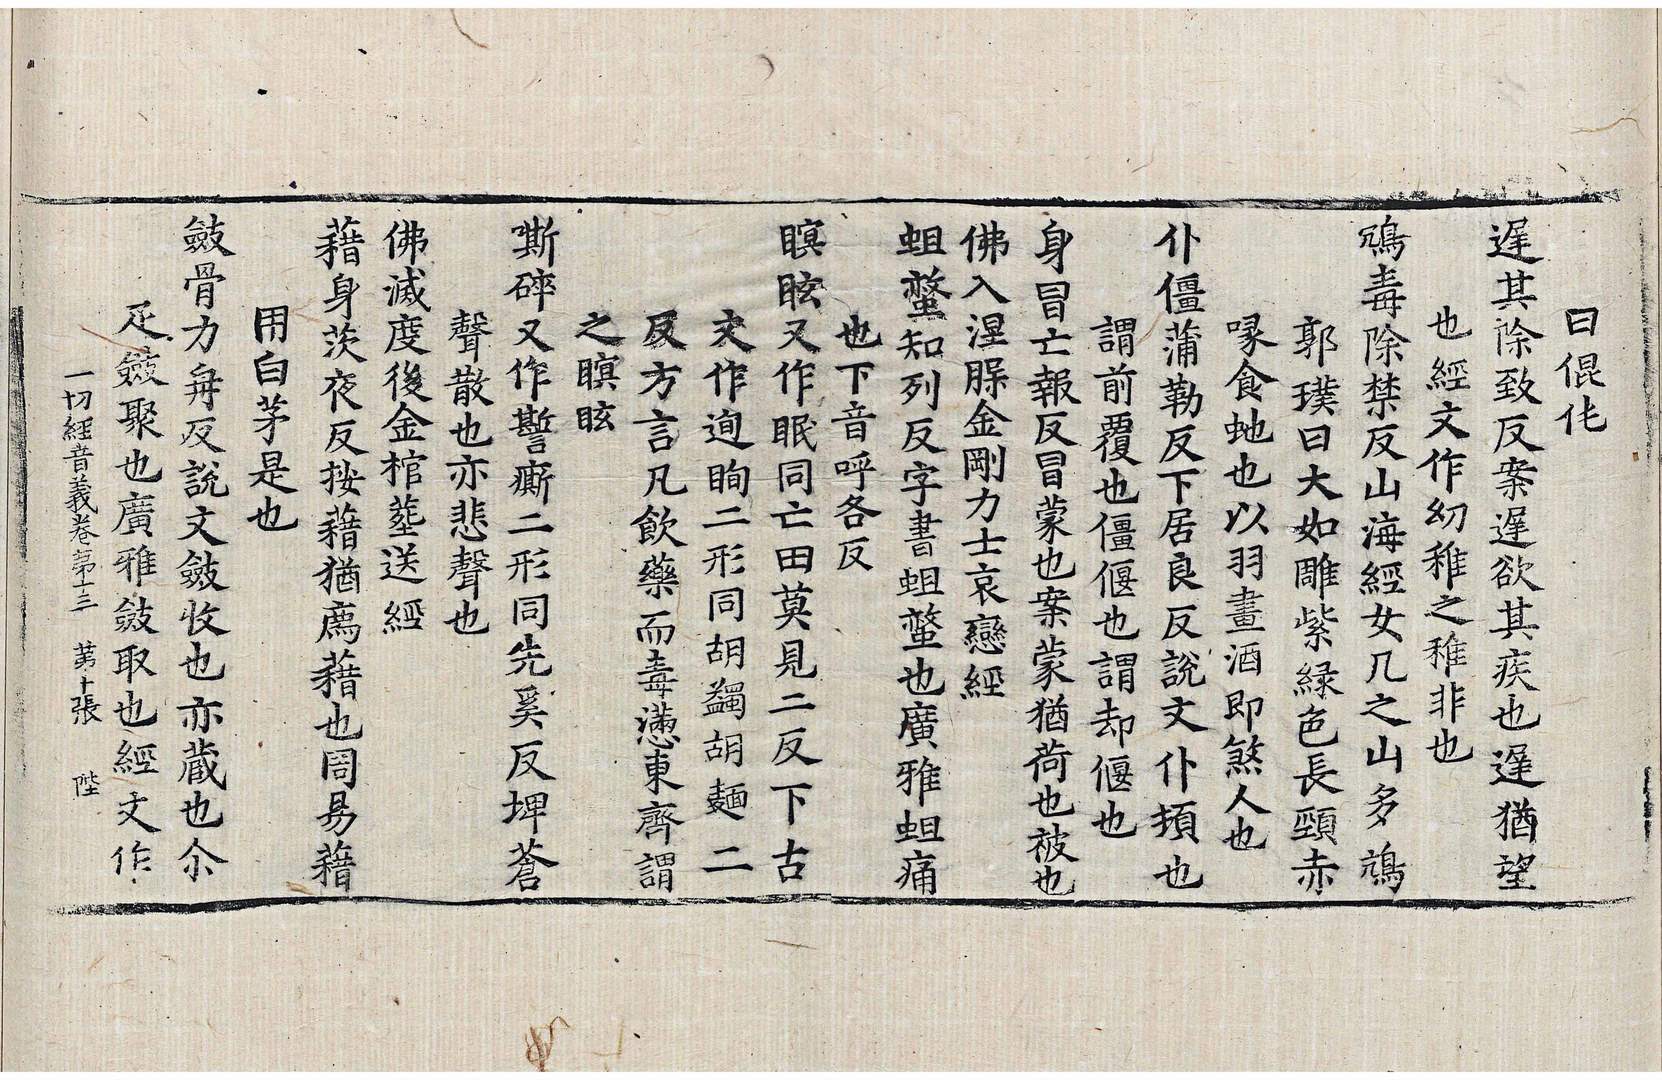 曰倱伅
遲其除致反案遲欲其疾也遲猶望
也經文作幼稚之稚非也
鴆毒除禁反山海經女几之山多鴆
郭璞曰大如雕紫緑色長頸赤
喙食虵也以羽畫酒即煞人也
仆僵蒲勒反下居良反說文仆頓也
謂前覆也僵偃也謂却偃也
身冒亡報反冒蒙也案蒙猶荷也被也
佛入涅脲金剛力士哀戀經
蛆螫知列反字書蛆螫也廣雅蛆痛
也下音呼各反
瞑眩又作眠同亡田莫見二反下古
文作迿眴二形同胡蠲胡麵二
反方言凡飲藥而毒懣東齊謂
之瞑眩
嘶碎又作誓㿄二形同先奚反埤蒼
聲散也亦悲聲也
佛滅度後金棺塟送經
藉身茨夜反按藉猶薦藉也周易藉
用白茅是也
斂骨力冉反說文斂收也亦蔵也尒
疋斂聚也廣雅斂取也經文作
一切經音義卷第十三 第十張 陛